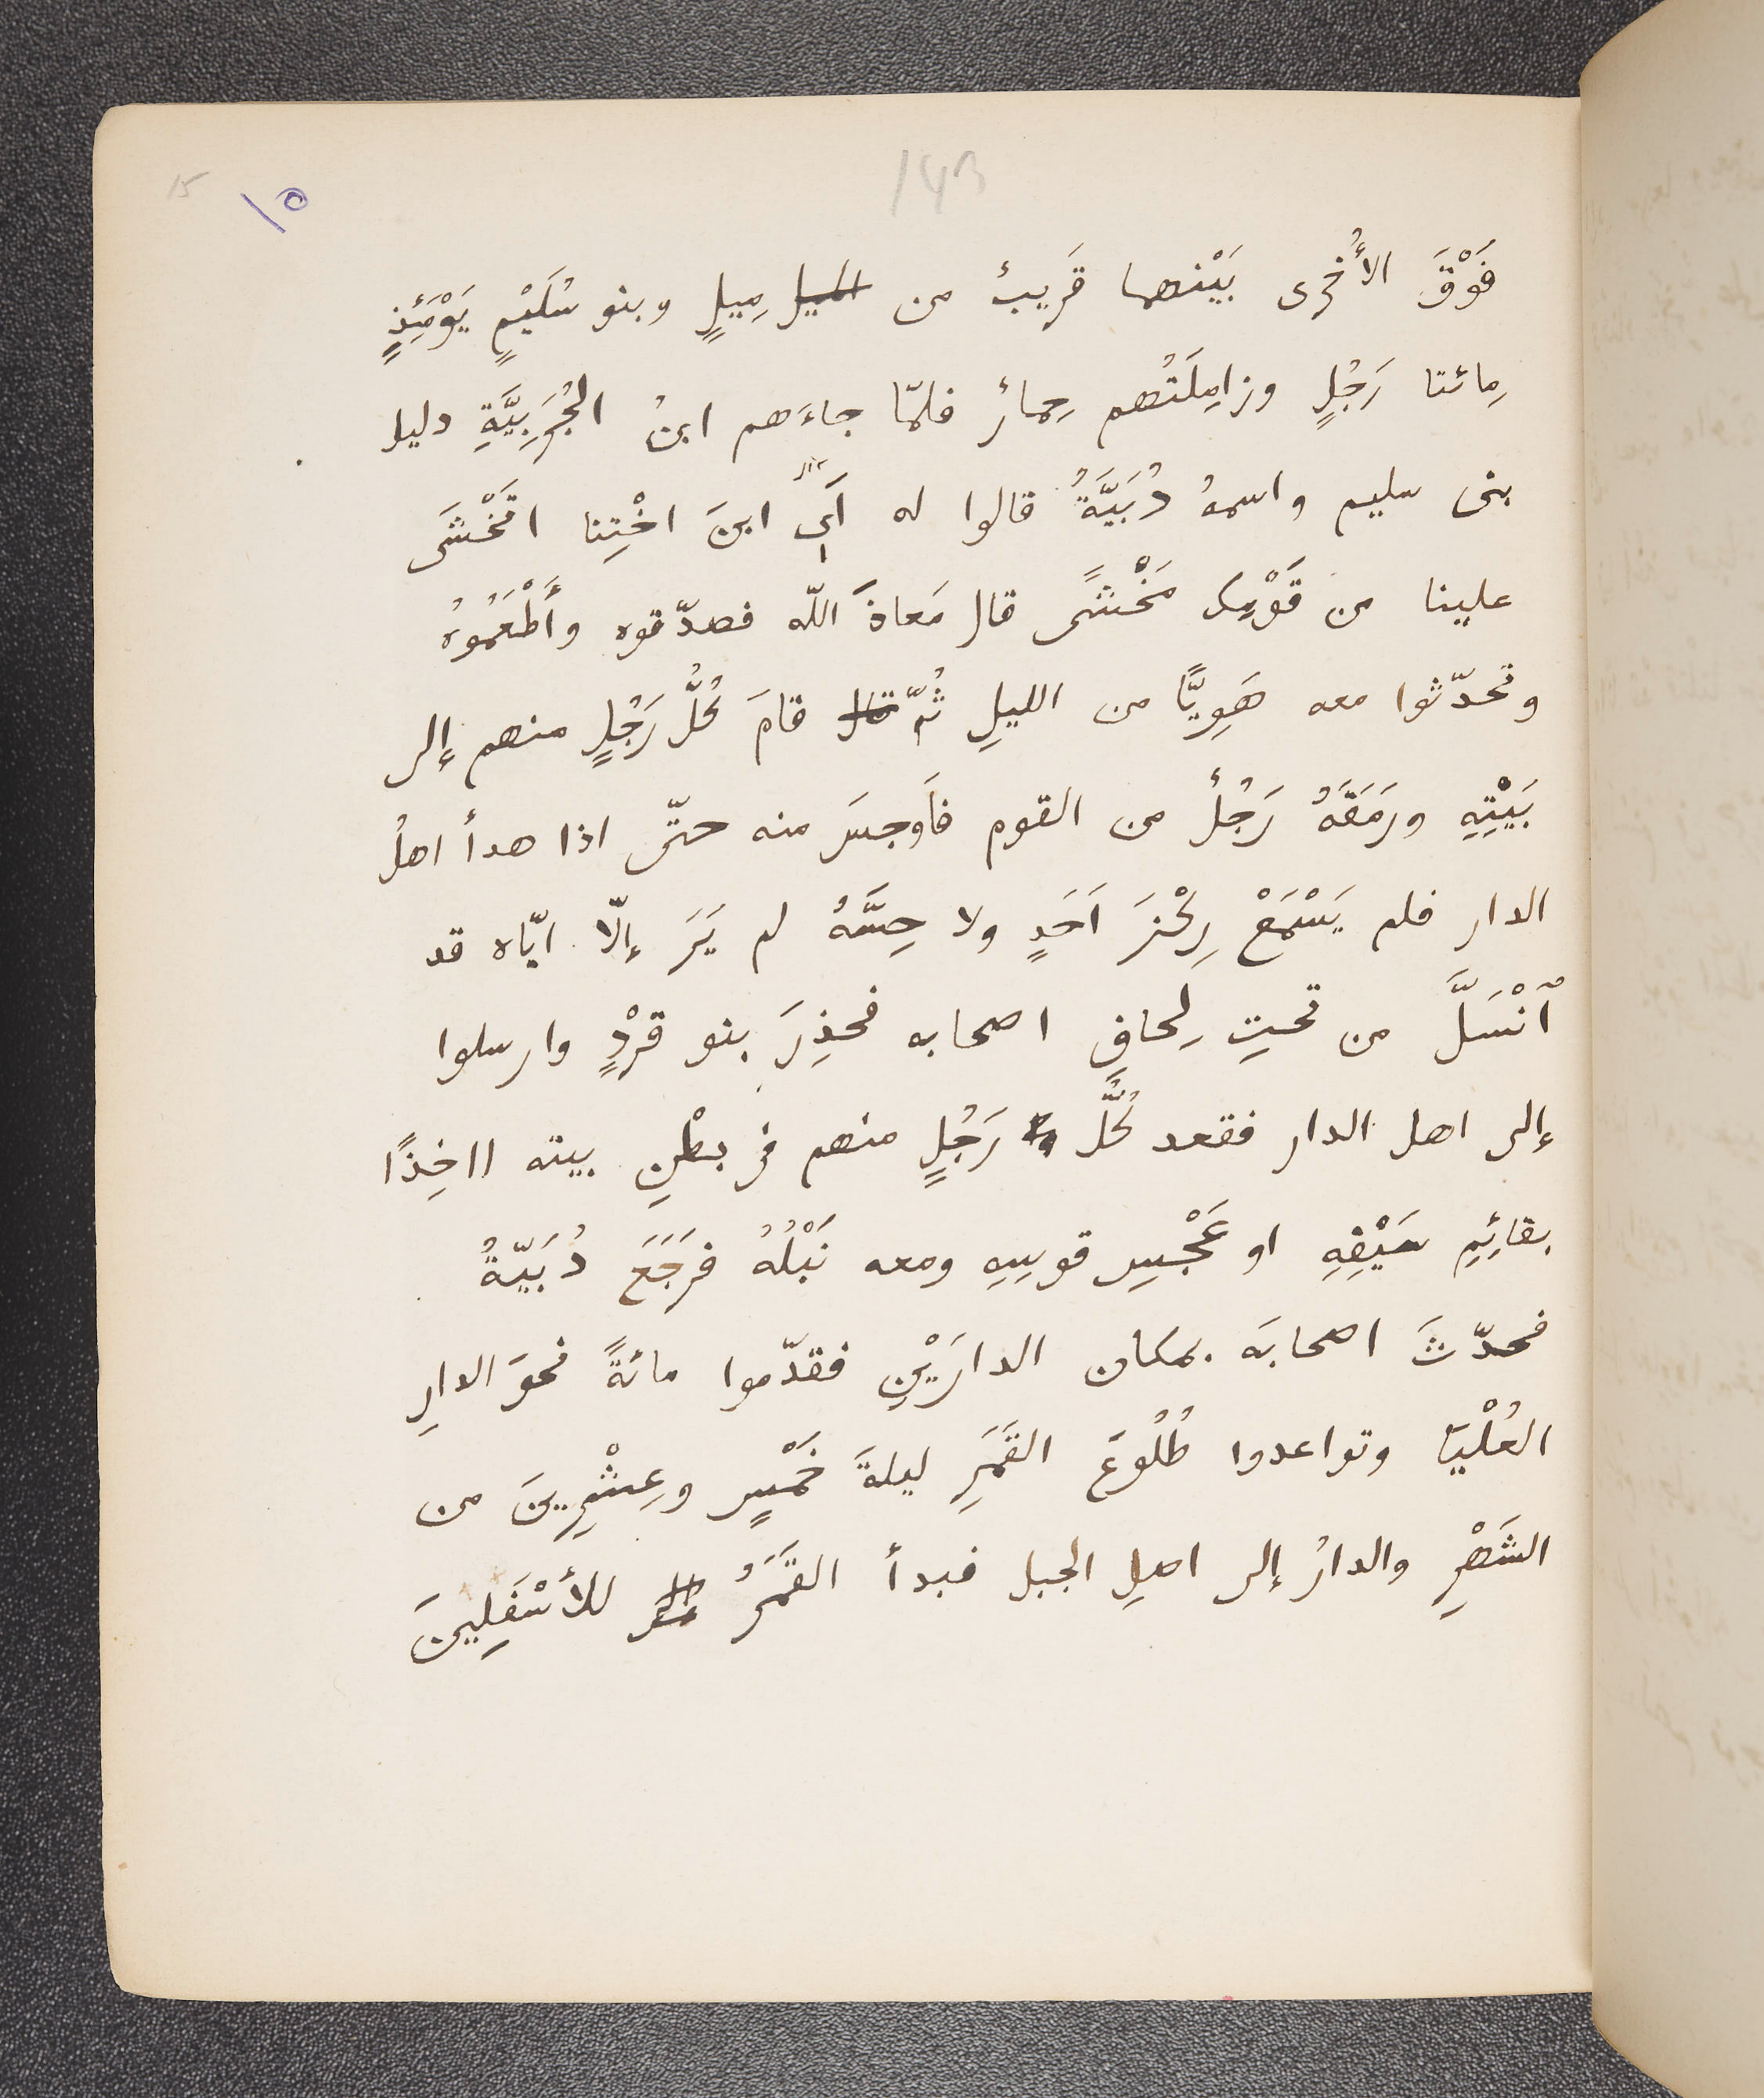 143
15
١٥
فَوْقَ الأُخرى بَيْنهما قَريبٌ من الميل مِيلٍ وبنو سُلَيْمٍ يَوْمَئِذٍ
مِائتا رَجُلٍ وزامِلَتُهم حِمارٌ فلمّا جاءَهم ابنُ الجُرَبِيَّةِ دليل
بنى سليم واسمهُ دُبَيَّةُ قالوا له أَىِ ابنَ اخْتِنا اتَخْشَى
علينا من قَوْمِك مَخْشًى قال مَعاذَ اللّه فصدّقوه وأَطْعَمُوهُ
وتحدّثوا معه هَوِيًّا من الليلِ ثُمّ قال قامَ كُلُّ رَجُلٍ منهم إلى
بَيْتِهِ ورَمَقَهُ رَجُلٌ من القوم فاَوجسَ منه حتّى اذا هدأ اهلُ
الدار فلم يَسْمَعْ رِكْزَ اَحَدٍ ولا حِسَّهُ لم يَرَ إلّا ايّاه قد
ٱنْسَلَّ من تحتِ لِحافِ اصحابه فحذِرَ بنو قرْدٍ وارسلوا
إلى اهل الدار فقعد كُلُّ رَجُلٍ منهم فى بطْنِ بيته ااخِذًا
بقائِمِ سَيْفِهِ او عَجْسِ قوسِهِ ومعه نَبْلُهُ فرَجَعَ دُبَيّةُ
فحدّثَ اصحابَه بمكان الدارَيْنِ فقدّموا مائةً نحوَ الدارِ
العُلْيَا وتواعدوا طُلُوعَ القَمَرِ ليلةَ خَمْسٍ وعِشْرِينَ من
الشَهْرِ والدارُ إلى اهلِ الجبل فبدأ القَمَرُ للأسْفَلِينَ